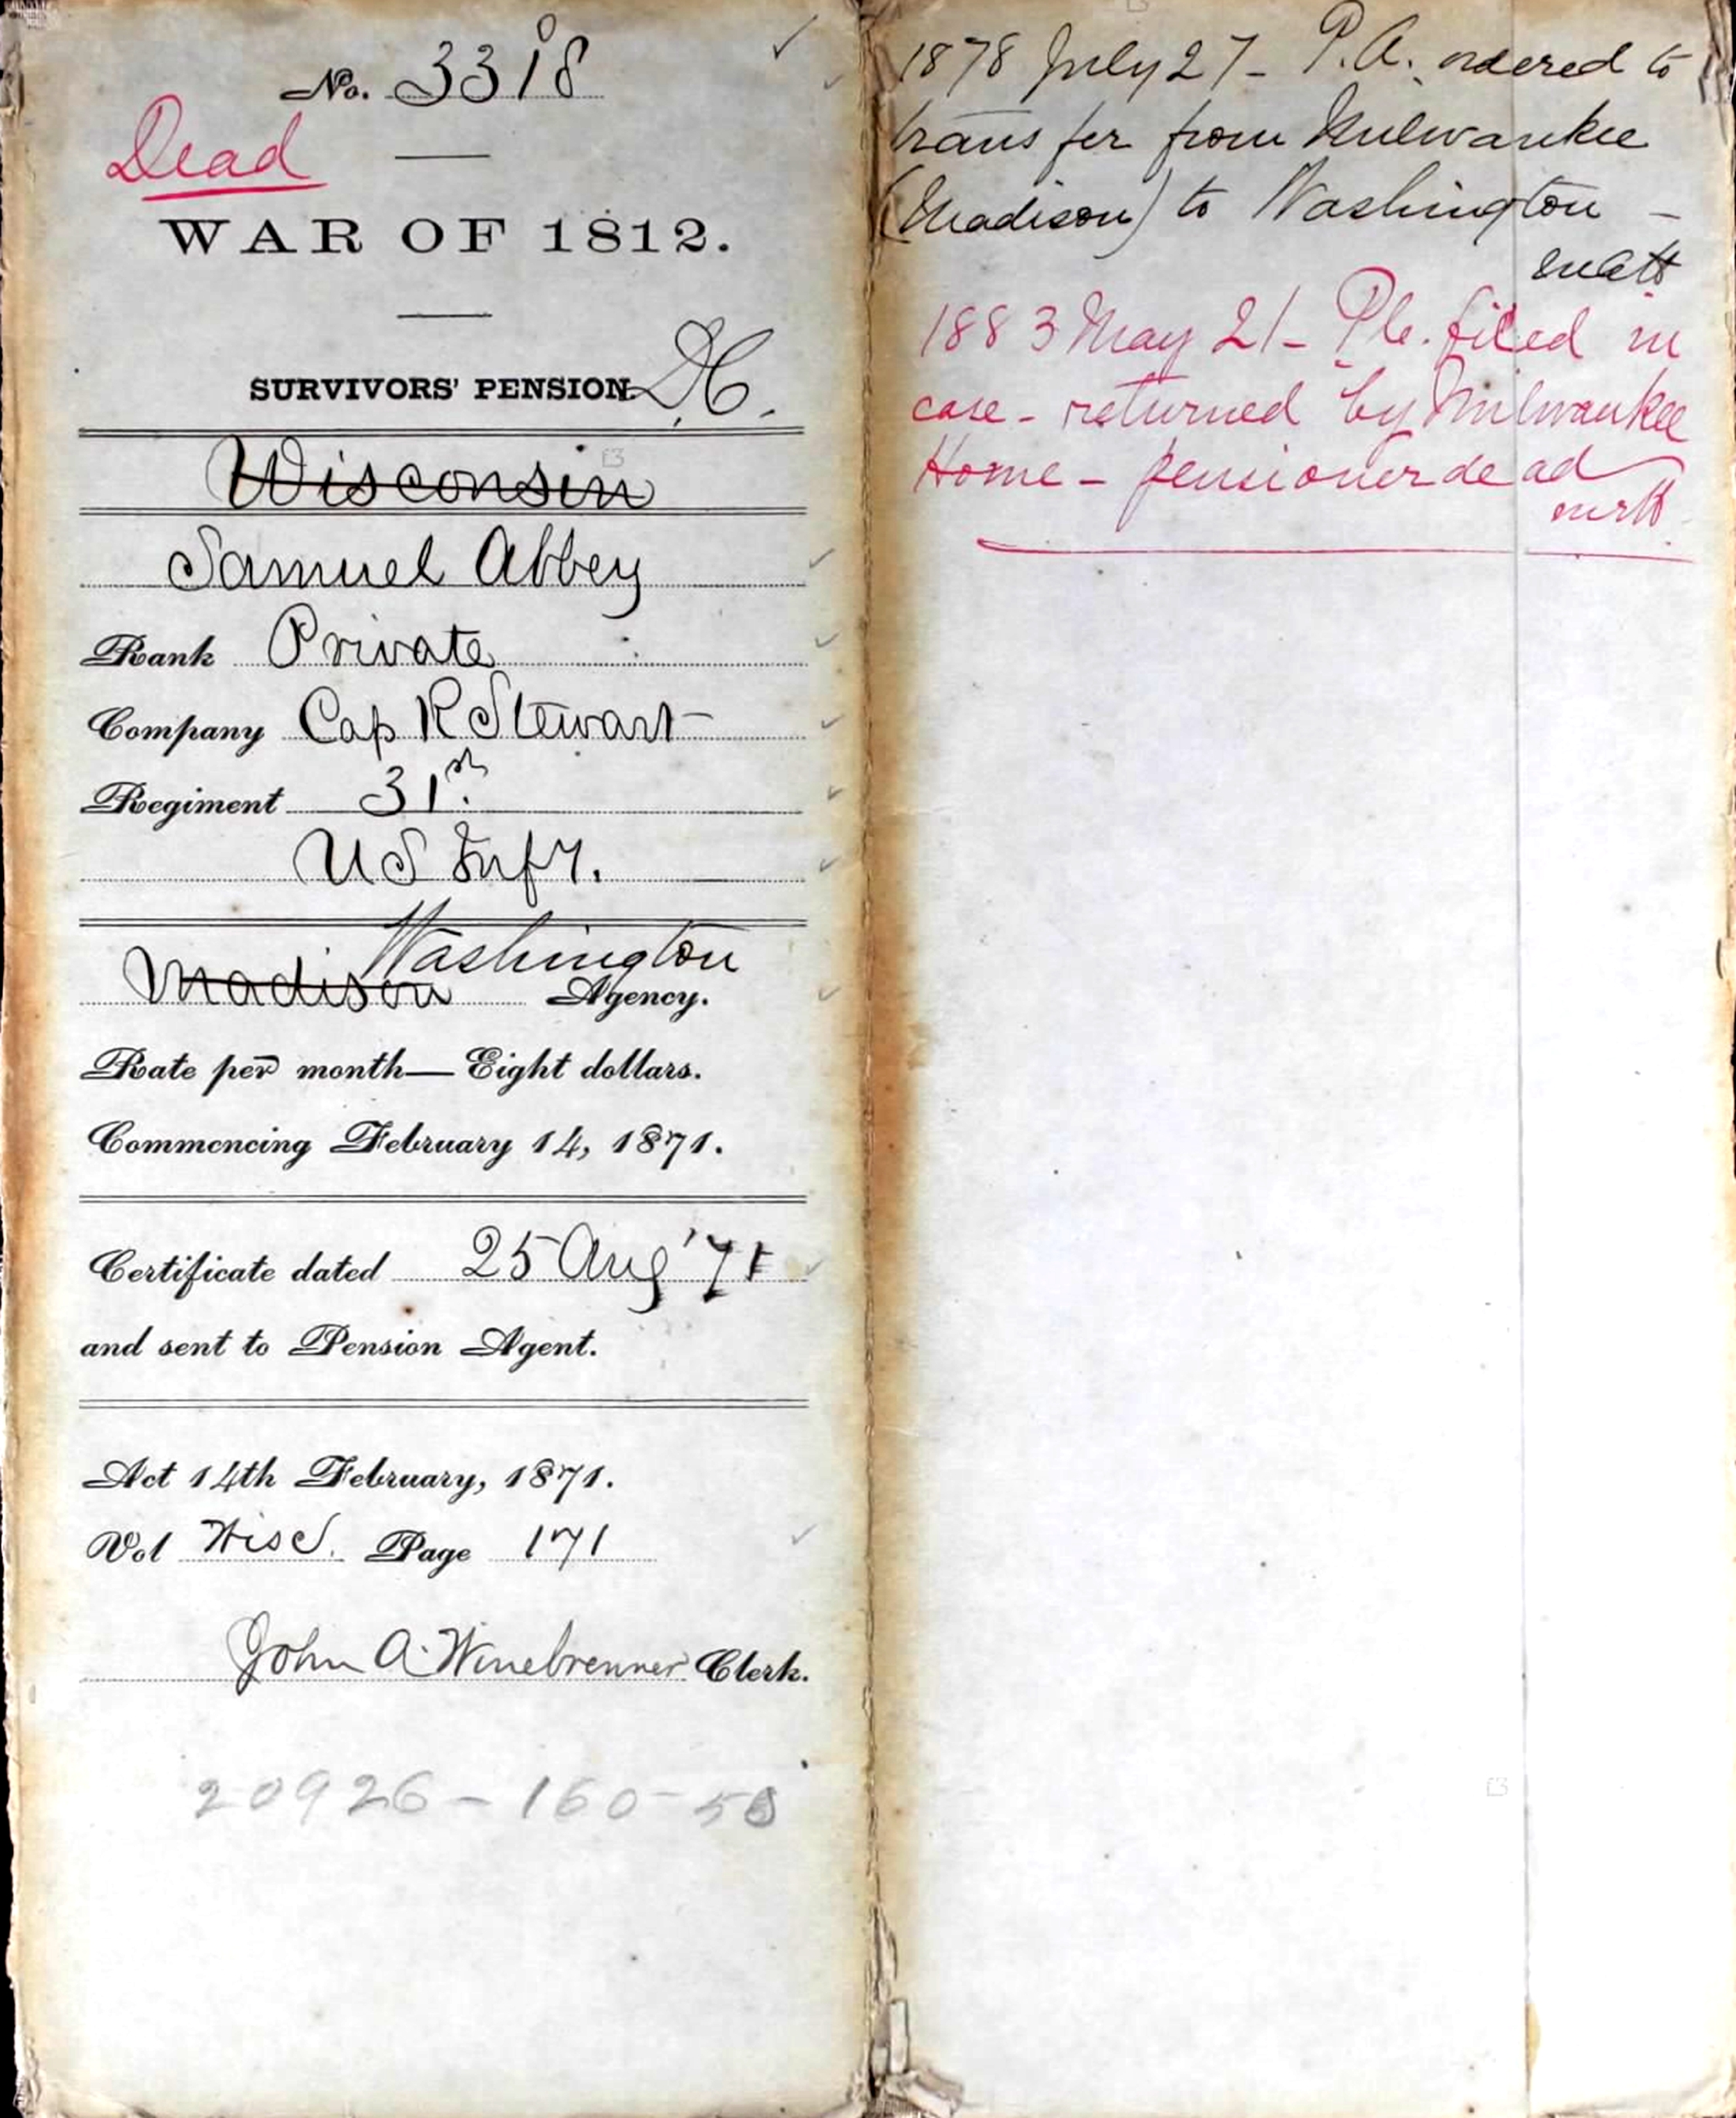 No. 3318
Dead
WAR OF 1812.
SURVIVORS' PENSION.
D.C.
Wisconsin
Samuel Abbey
Rank Private
Company Cap R Stewart
Regiment 31st
US Infy.
Washington
Madison Agency.
Rate per month—Eight dollars.
Commencing February 14, 1871.
Certificate dated 25 Aug '71
and sent to Pension Agent.
Act 14th February, 1871.
Vol Wisc. Page 171
John A. Winebrenner Clerk.
20926-160-50
1878 July 27 - P.A. ordered to
transfer from Milwaukee
(Madison) to Washington -
1883 May 21 - filed in
case - returned by Milwaukee
Home - pensioner dead